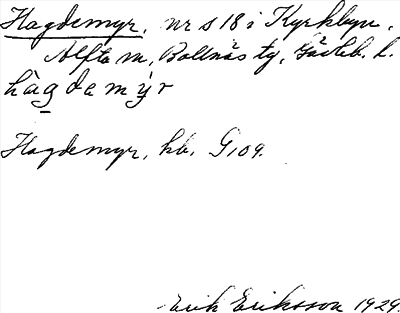 Hagdemyr, nr s 18 i Kyrkbyn,
Alfta sn, Bollnäs tg, Gävleb. l.
hàgdemy̍r
Hagdemyr, kb. G109.
Erik Eriksson 1929.